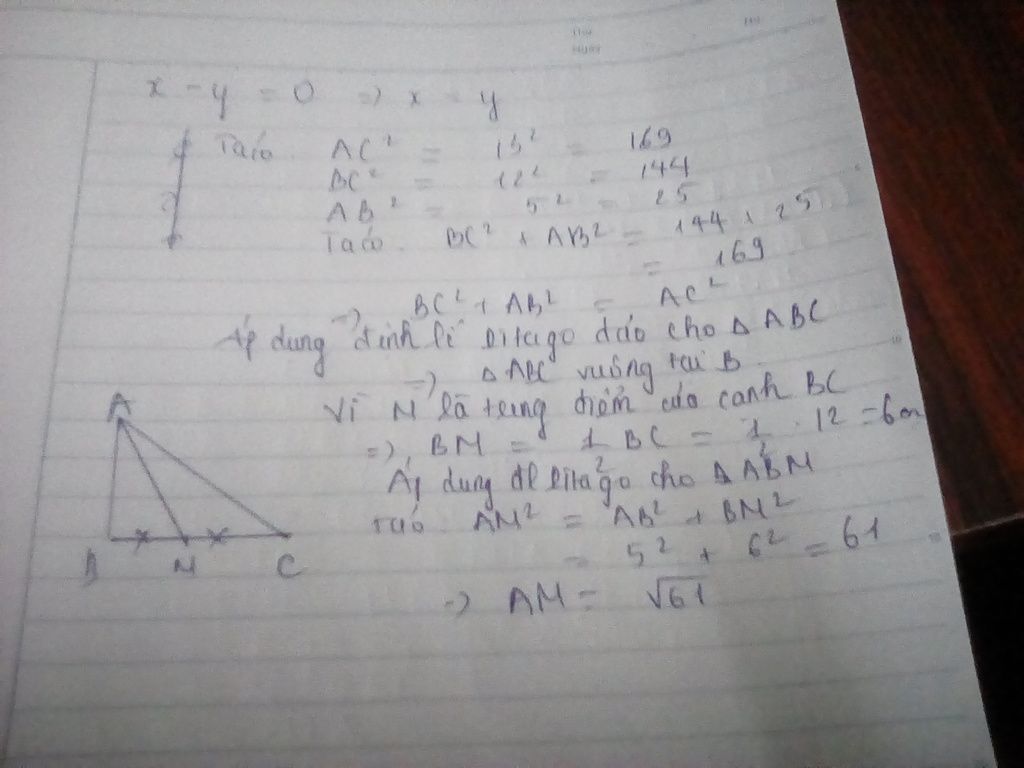 Thứ
Ngày
x - y = 0 => x = y
Ta có AC² = 13² = 169
BC² = 12² = 144
AB² = 5² = 25
Ta có. BC² + AB² = 144 + 25
= 169
=> BC² + AB² = AC²
Áp dụng định lí Pitago đảo cho Δ ABC
=> Δ ABC vuông tại B.
Vì M là trung điểm của cạnh BC
=> BM = 1/2 BC = 1/2 . 12 = 6 cm
Áp dụng ĐL Pitago cho Δ ABM
Ta có AM² = AB² + BM²
= 5² + 6² = 61
=> AM = √61
A
B M C